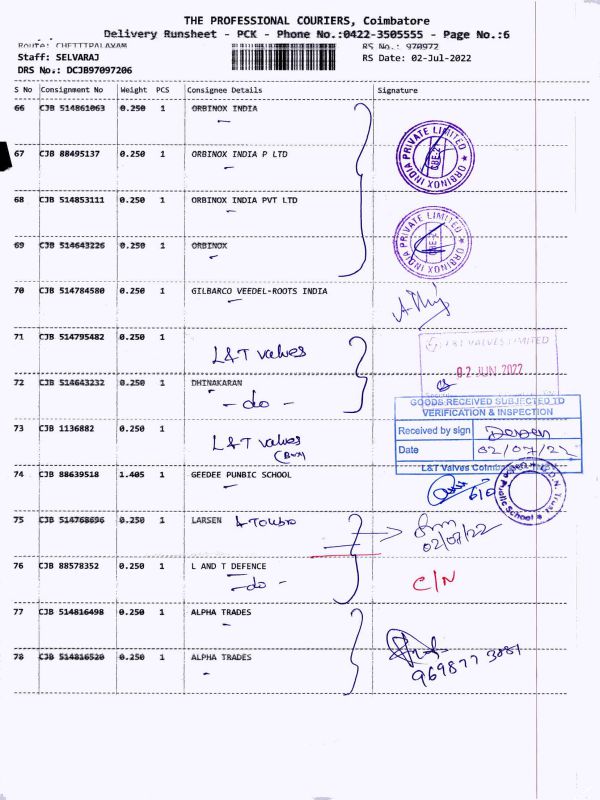 THE PROFESSIONAL COURIERS, Coimbatore
Delivery Runsheet - PCK - Phone No.:0422-3505555 - Page No.:6
Route: CHETTIPALAYAM RS No.: 970972
Staff: SELVARAJ RS Date: 02-Jul-2022
DRS No.: DCJB97097206
S No Consignment No Weight PCS Consignee Details Signature
66 CJB 514861063 0.250 1 ORBINOX INDIA
ORBINOX INDIA PRIVATE LIMITED
CBE-21
67 CJB 88495137 0.250 1 ORBINOX INDIA P LTD
68 CJB 514853111 0.250 1 ORBINOX INDIA PVT LTD
ORBINOX INDIA PRIVATE LIMITED
69 CJB 514643226 0.250 1 ORBINOX
70 CJB 514784580 0.250 1 GILBARCO VEEDEL-ROOTS INDIA
71 CJB 514795482 0.250 1
L&T VALVES LIMITED
L&T valves
02 JUN 2022
72 CJB 514643232 0.250 1 DHINAKARAN
- do -
GOODS RECEIVED SUBJECTED TO
VERIFICATION & INSPECTION
73 CJB 1136882 0.250 1
Received by sign
L&T valves
Date 02/07/22
L&T Valves Coimb
74 CJB 88639518 1.405 1 GEEDEE PUNBIC SCHOOL
Public School
G.D.N. Trust
75 CJB 514768696 0.250 1 LARSEN & Toubro
02/08/22
76 CJB 88578352 0.250 1 L AND T DEFENCE
- do -
C/N
77 CJB 514816498 0.250 1 ALPHA TRADES
78 CJB 514816520 0.250 1 ALPHA TRADES
969877 3081